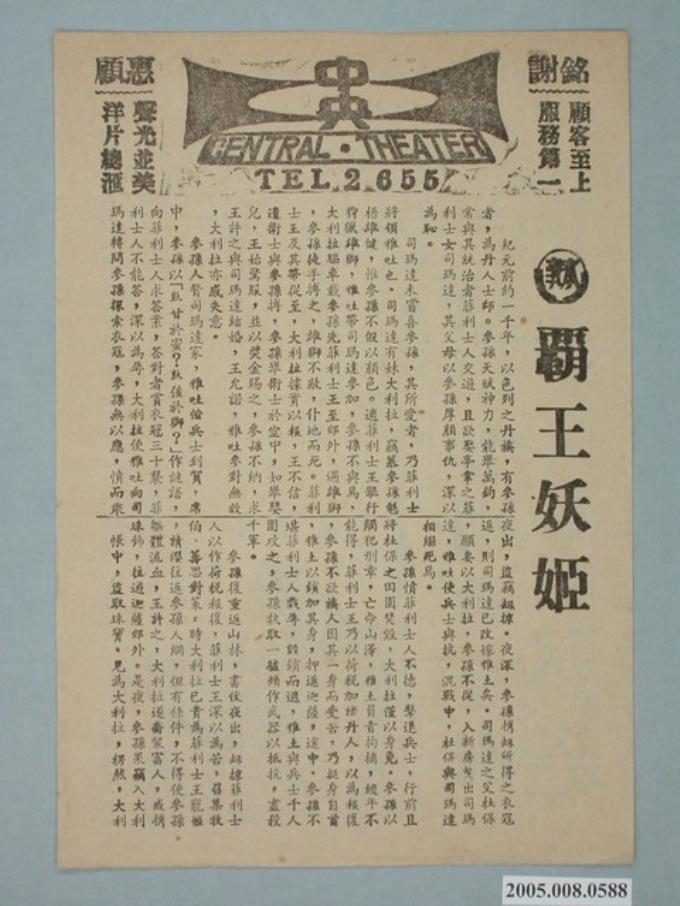 銘謝
惠顧
顧客至上
服務第一
聲光並美
洋片總滙
中央
CENTRAL・THEATER
TEL.2655
霸王妖姬
紀元前約一千年，以色列之丹族，有參孫
者，為丹人士師。參孫天賦神力，能舉萬鈞，
常與其統治者菲利士人交遊，且欲娶亭拿之菲
利士女司瑪達，其父母以參孫厚顏事仇，深以
為恥。
司瑪達未嘗喜參孫，其所愛者，乃菲利士
將領雅吐也。司瑪達有妹大利拉，竊慕參孫魁
梧雄健，惟參孫不假以顏色。適菲利士王舉行
狩獵雄獅，雅吐帶司瑪達參加，參孫不與焉，
大利拉驅車載參孫先菲利士王至郊外，遇雄獅
，參孫徒手搏之，雄獅不敵，仆地而死。菲利
士王及其帶從至，大利拉據實以報，王不信，
遣衛士與參孫搏，參孫舉衛士於空中，如舉嬰
兒，王始驚服，並以獎金賜之，參孫不納，求
王許之與司瑪達結婚，王允諾，雅吐參對無效
，大利拉亦感失意。
參孫入贅司瑪達家，雅吐偕兵士到賀，席
中，參孫以「孰甘於蜜？孰強於獅？」作謎語，
向菲利士人求答案，答對者賞衣冠三十襲，菲
利士人不能答，深以為辱，大利拉使雅吐向司
瑪達轉問參孫探索衣冠，參孫無以應，憤而乘
夜出，盜竊劫掠。夜深，參孫携劫所得之衣冠
返，則司瑪達已改嫁雅土矣。司瑪達之父杜保
願妻以大利拉，參孫不從，入新房曳出司瑪
達，雅吐使兵士與抗，混戰中，杜保與司瑪達
相繼死焉。
參孫憤菲利士人不德，擊退兵士，行前且
將杜保之田園焚燬，大利拉僅以身免。參孫以
觸犯刑章，亡命山澤，雅土負責拘捕，經年不
能得，菲利士王乃以苛稅加諸丹人，以為報復
，參孫不欲族人因其一身而受苦，乃挺身自首
，雅土以鎖加其身，押返迦薩，途中，參孫不
堪菲利士人戲辱，毀鎖而遁，雅土與兵士千人
圍攻之，參孫執取一驢頰作武器以抵抗，盡殺
千軍。
參孫復重返山林，晝伏夜出，劫掠菲利士
人以作苛稅報復，菲利士王深以為苦，召集牧
伯，籌思對策。時大利拉已貴為菲利士王寵姬
，請纓往返參孫入網，但有條件，不得使參孫
軀體流血，王許之，大利拉遂喬裝富人，威携
珠飾，往遊迦薩郊外。是夜，參孫果竊入大利
帳中，盜取珠寶。見為大利拉，愕然，大利
2005.008.0588